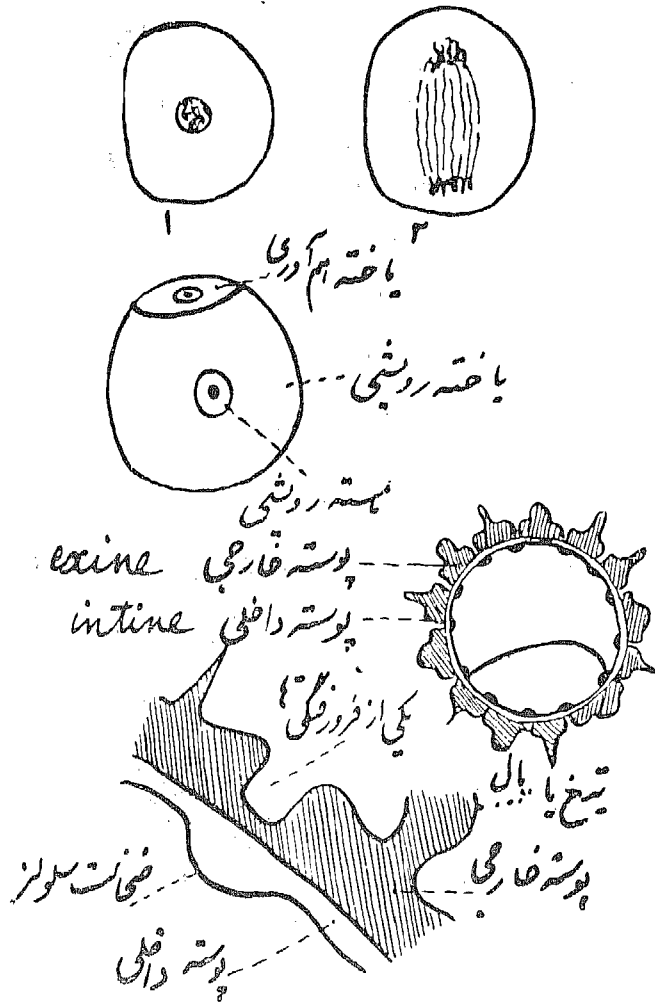 ۱
۲
یاخته هم‌آوری
یاخته رویشی
هسته رویشی
exine پوسته خارجی
intine پوسته داخلی
یکی از فرورفتگی‌ها
تیغ یا
پوسته خارجی
ضخامت سلولز
پوسته داخلی